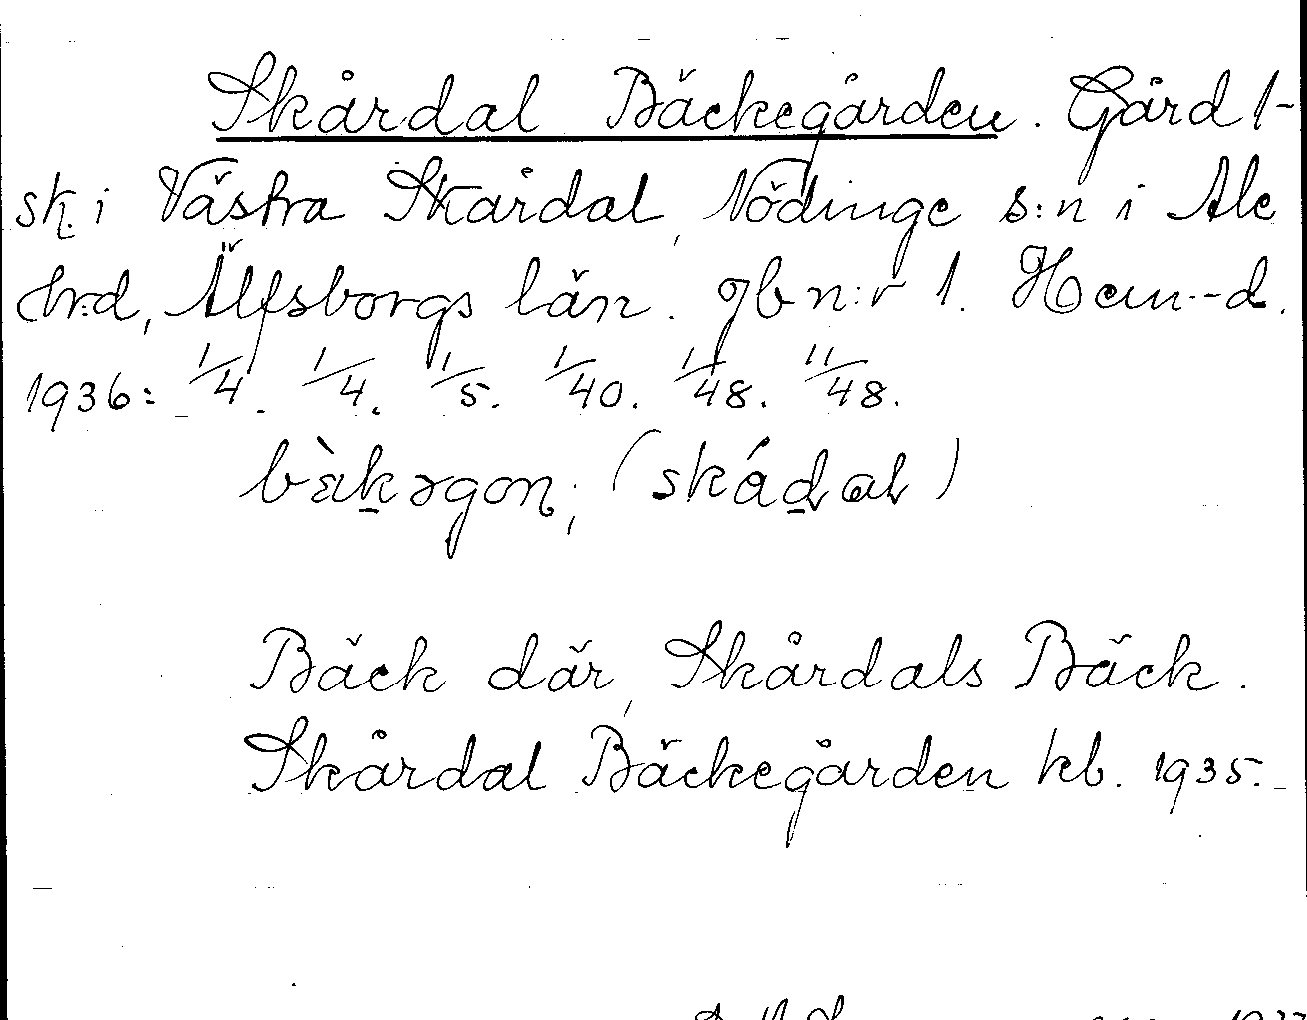 Skårdal Bäckegården. Gård 1-
sk. i Västra Skårdal, Nödinge s:n i Ale
hrd, Älfsborgs län. gb n:r 1. Hem.-d.
1936: 1/4. 1/4. 1/5. 1/40. 1/48. 11/48.
bàkəgon; (skádal)
Bäck där, Skårdals Bäck.
Skårdal Bäckegården kb. 1935.